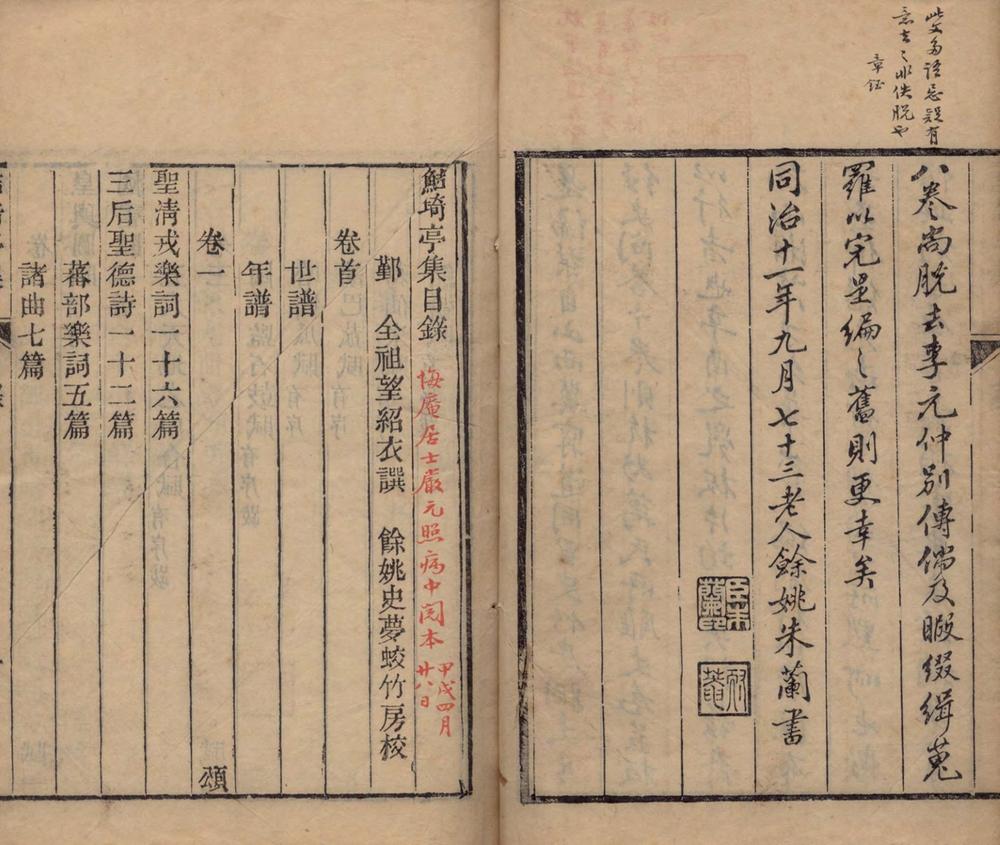 此文多語忌疑有
意去之非佚脫也
章鈺
八卷尚脫去李元仲別傳儻及暇綴緝蒐
羅以完呈編之舊則更幸矣
同治十一年九月七十三老人餘姚朱蘭書
臣朱蘭印
鮚埼亭集目錄
悔庵居士嚴元照病中閱本
甲戌四月
廿八日
鄞 全祖望紹衣譔 餘姚史夢蛟竹房校
卷首
世譜
年譜
卷一 頌
聖清戎樂詞一十六篇
三后聖德詩一十二篇
蕃部樂詞五篇
諸曲七篇